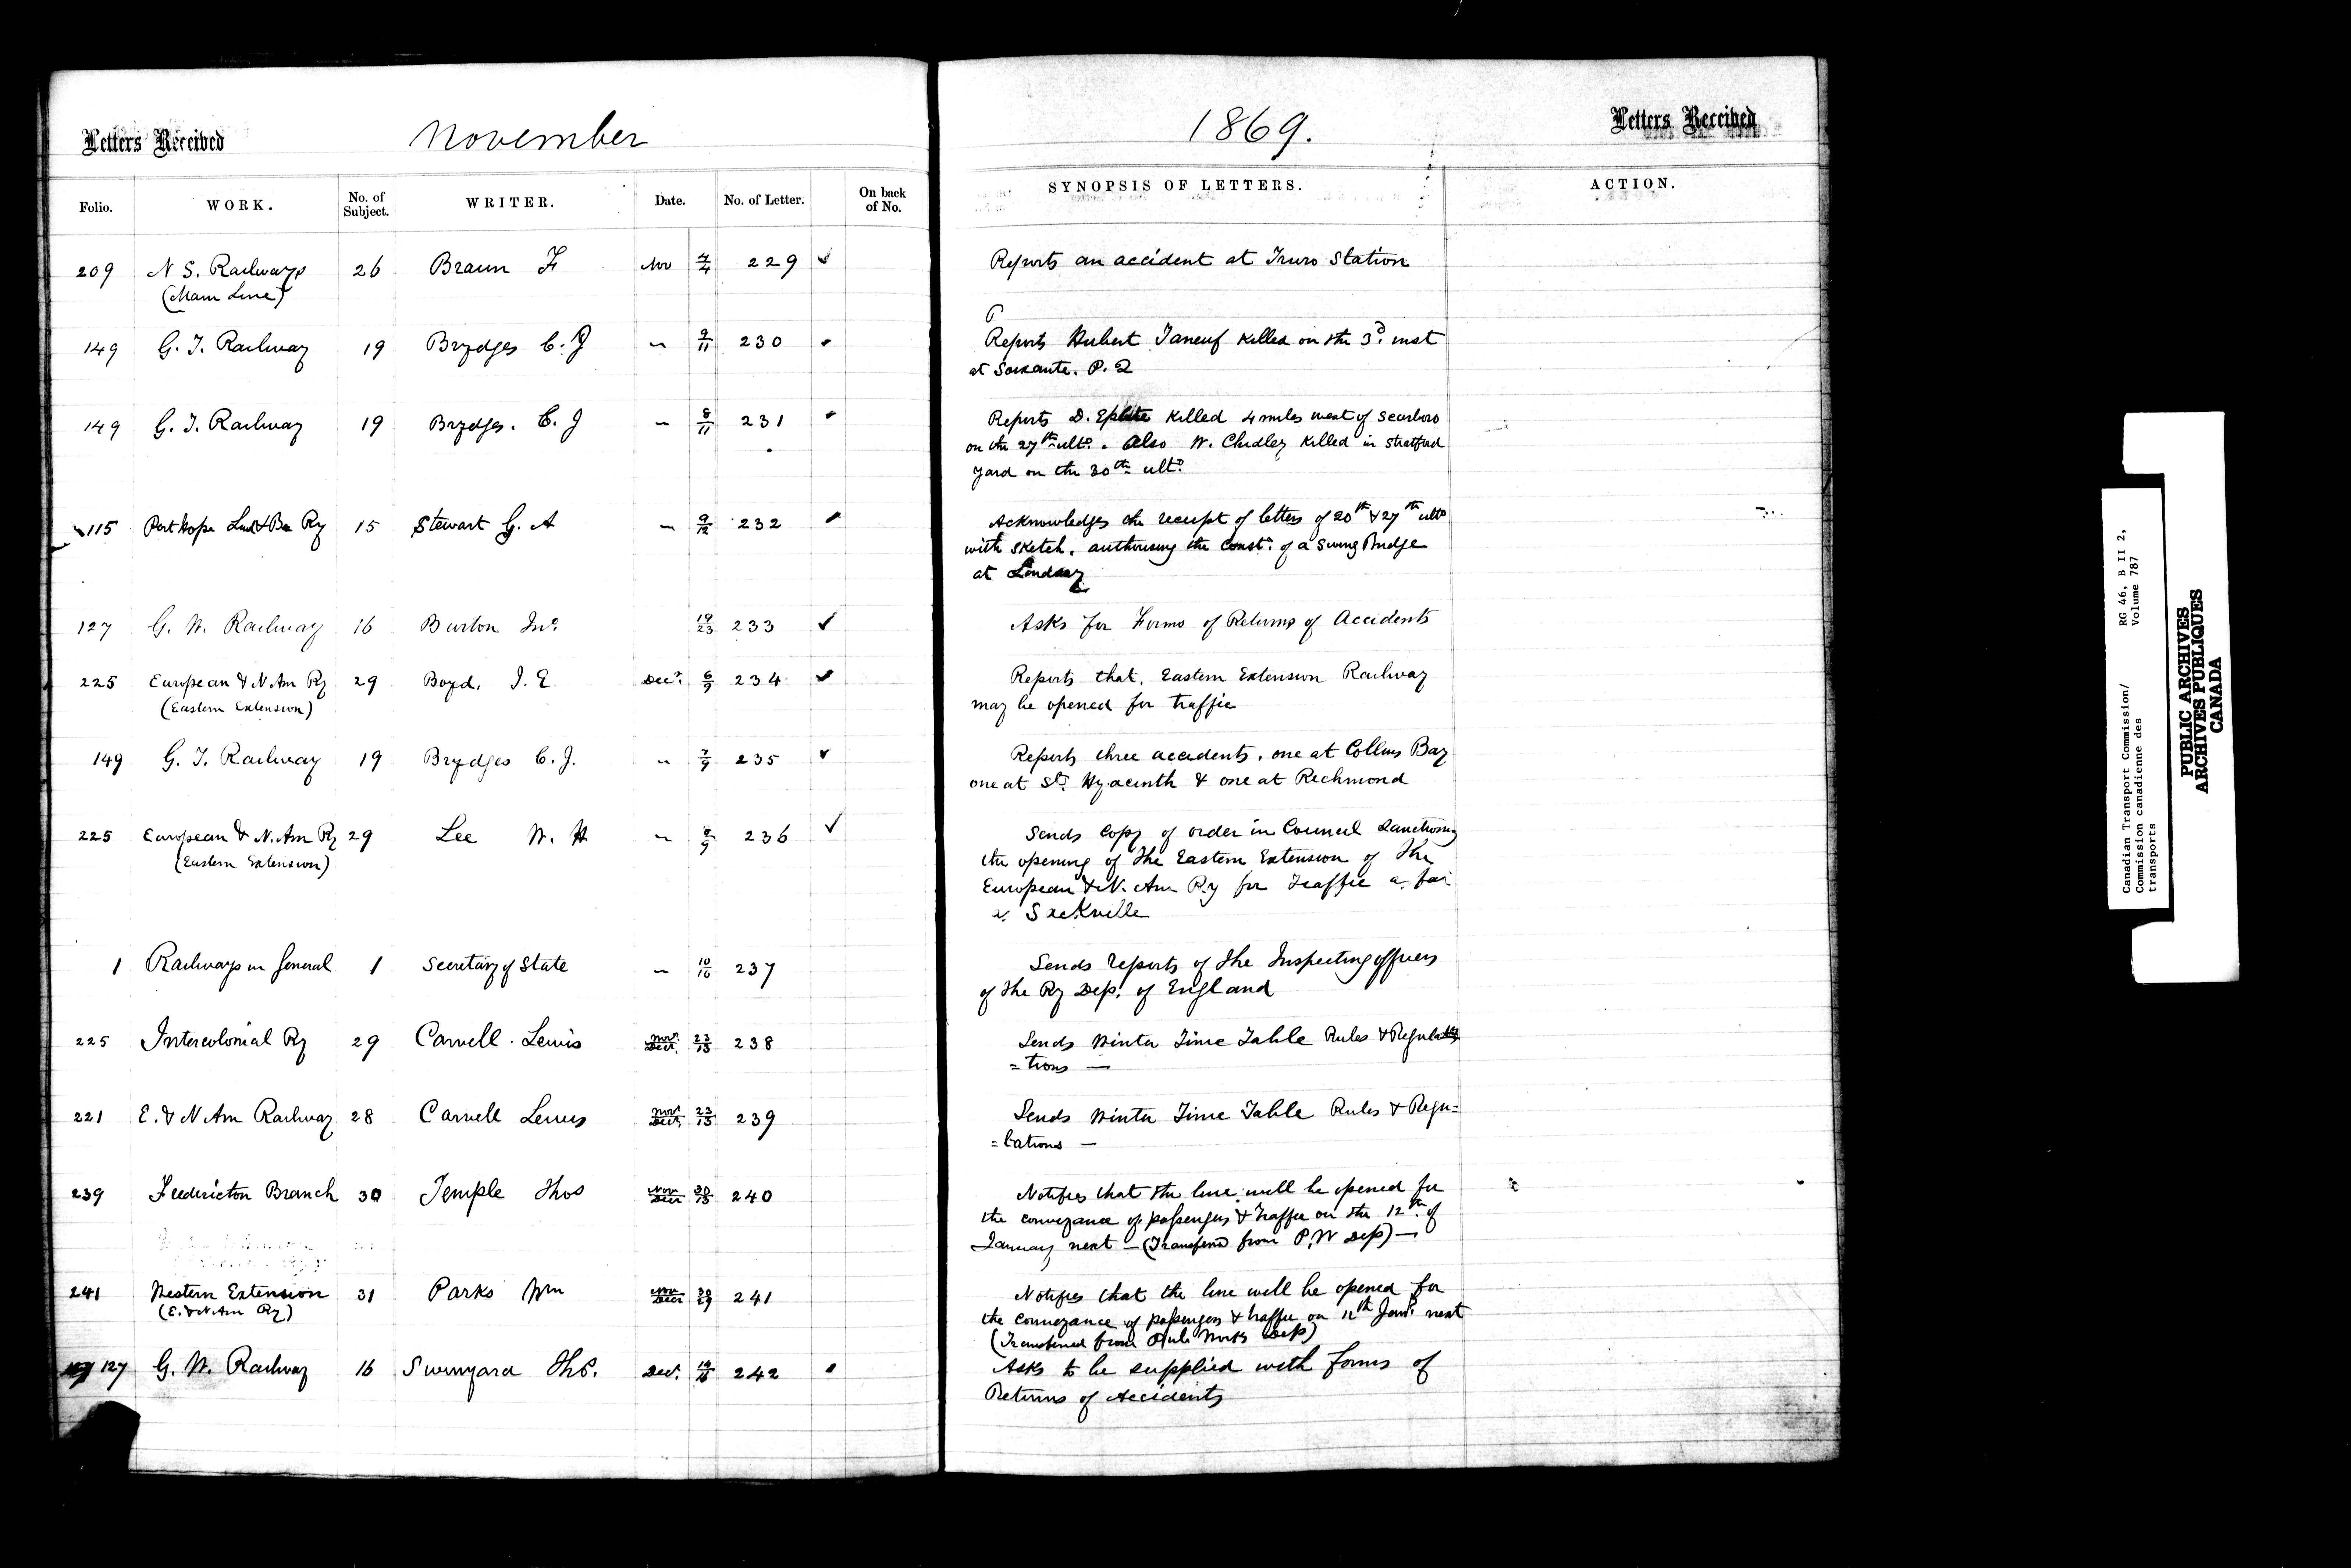 Letters Received
November
1869.
Letters Received
Folio. WORK. No. of Subject. WRITER. Date. No. of Letter. On back of No. SYNOPSIS OF LETTERS. ACTION.
209 N S. Railways 26 Braun F Nov 4/4 229 ✓ Reports an accident at Truro Station
(Main Line)
149 G. T. Railway 19 Brydges C. J " 9/11 230 Reports Hubert Taneuf Killed on the 3d. inst
at P. Q
149 G. T. Railway 19 Brydges. C. J " 8/11 231 Reports D. Killed 4 miles west of Scarboro
on the 27th ulto. Also W. Chidley Killed in Stratford
Yard on the 30th ulto
115 Port Hope Lind & Ry 15 Stewart G. A " 9/12 232 Acknowledges the receipt of letters of 20th & 27th ulto
with sketch, authorising the Const. of a Swing Bridge
at Lindsay
127 G. W. Railway 16 Burton Jno. 19/23 233 ✓ Asks for Forms of Returns of Accidents
225 European & N. Am Ry 29 Boyd, J. E Decr. 6/9 234 ✓ Reports that, Eastern Extension Railway
(Eastern Extension) may be opened for traffic
149 G. T. Railway 19 Brydges C. J. " 7/9 235 ✓ Reports three accidents, one at Collins Bay
one at St. Hyacinth & one at Richmond
225 European & N. Am Ry 29 Lee W. H " 8/9 236 ✓ Sends Copy of order in Council Sanctioning
(Eastern Extension) the opening of the Eastern Extension of the
European & N. Am Ry for Traffic
Sackville
1 Railways in General 1 Secretary of State " 10/10 237 Sends reports of the Inspecting officers
of the Ry Dep. of England
225 Intercolonial Ry 29 Carvell. Lewis Nov. Dec. 23/15 238 Sends Winter Time Table Rules & Regula
=tions —
221 E. & N Am Railway 28 Carvell Lewis Nov. Dec. 23/15 239 Sends Winter Time Table Rules & Regu=
=lations —
239 Fredericton Branch 30 Temple Thos Nov Decr 30/15 240 Notifies that the line will be opened for
the conveyance of passengers & traffic on the 12th of
January next — (Transferd from P. W Dep) —
241 Western Extension 31 Parks Wm Nov Decr 30/29 241 Notifies that the line will be opened for
(E. & N. Am Ry) the conveyance of passengers & traffic on 12th Jany. next
(Transferred from Pub Works Dep)
127 G. W. Railway 16 Swinyard Ths. Dec. 242 Asks to be supplied with forms of
Returns of Accidents
Canadian Transport Commission/
Commission canadienne des
transports
RG 46, B II 2,
Volume 787
PUBLIC ARCHIVES
ARCHIVES PUBLIQUES
CANADA